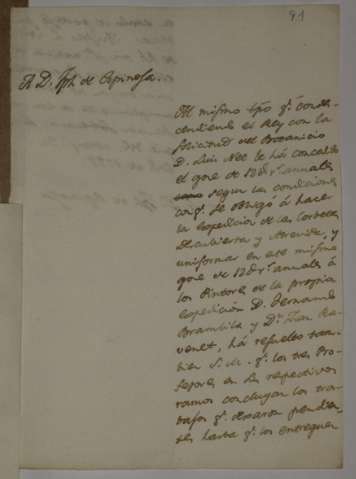 91
A D. Jph. de Espinosa.
Al mismo tpo. qe. conde-
cendiendo el Rey con la
solicitud del Botanico
D. Luis Neé le há concedido
el goze de 12 Dr.s annuales
segun las condiciones
con qe. se obligó á hacer
la expedicion de las Corbetas
Descubierta y Atrevida, y
uniformar en este mismo
goze de 12 Dr.s annuales á
los Pintores de la propia
expedición D. Fernando
Brambila y Dn. Juan Ra-
venet, há resuelto tam-
bien S. M. qe. los tres Pro-
fesores en sus respectivos
ramos concluyan los tra-
bajos qe. dexaron pendien-
tes hasta qe. los entreguen